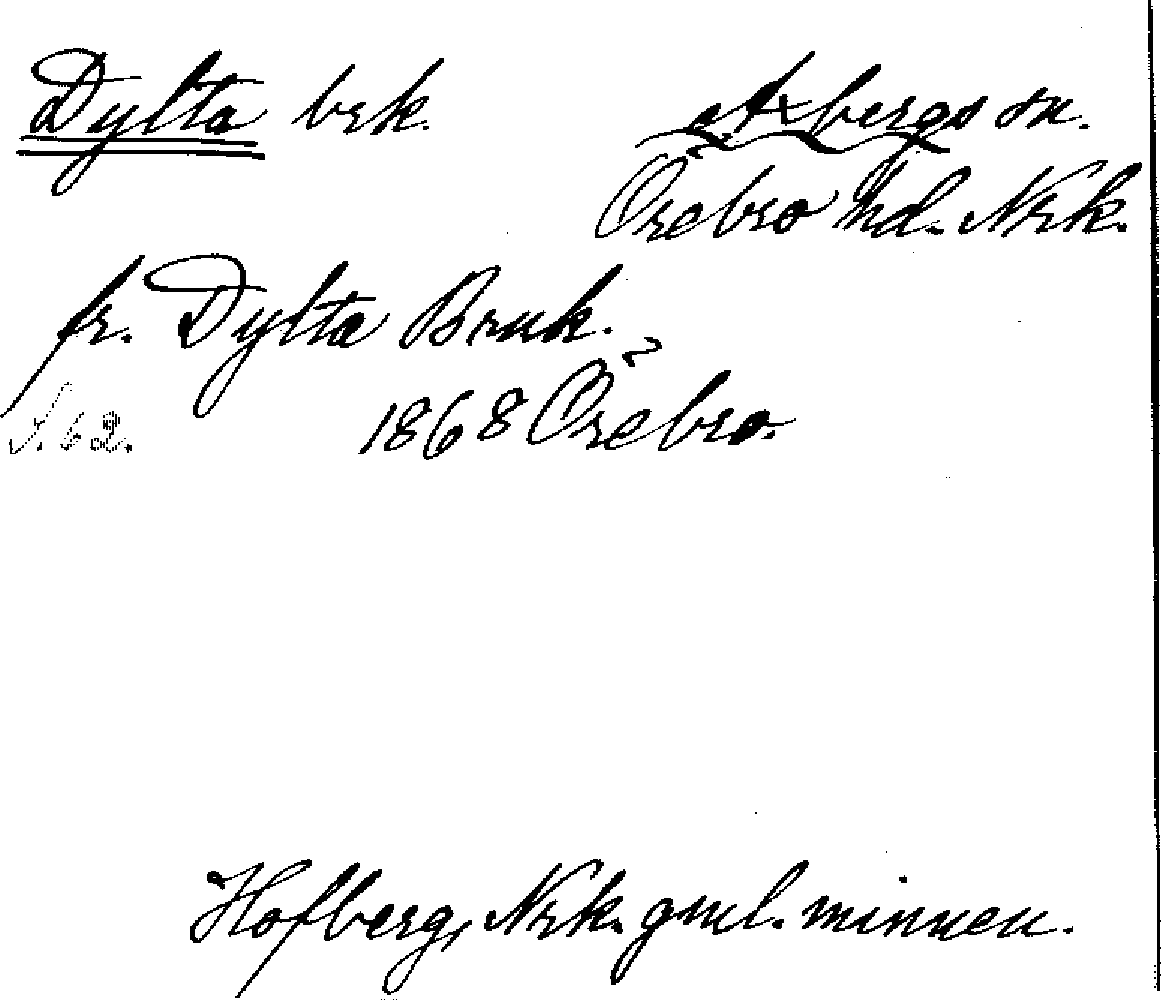 Dylta brk. Axbergs sn.
Örebro hd. Nrk.
fr. Dylta Bruk.
S. 62. 1868 Örebro.
Hofberg, Nrk. gml. minnen.